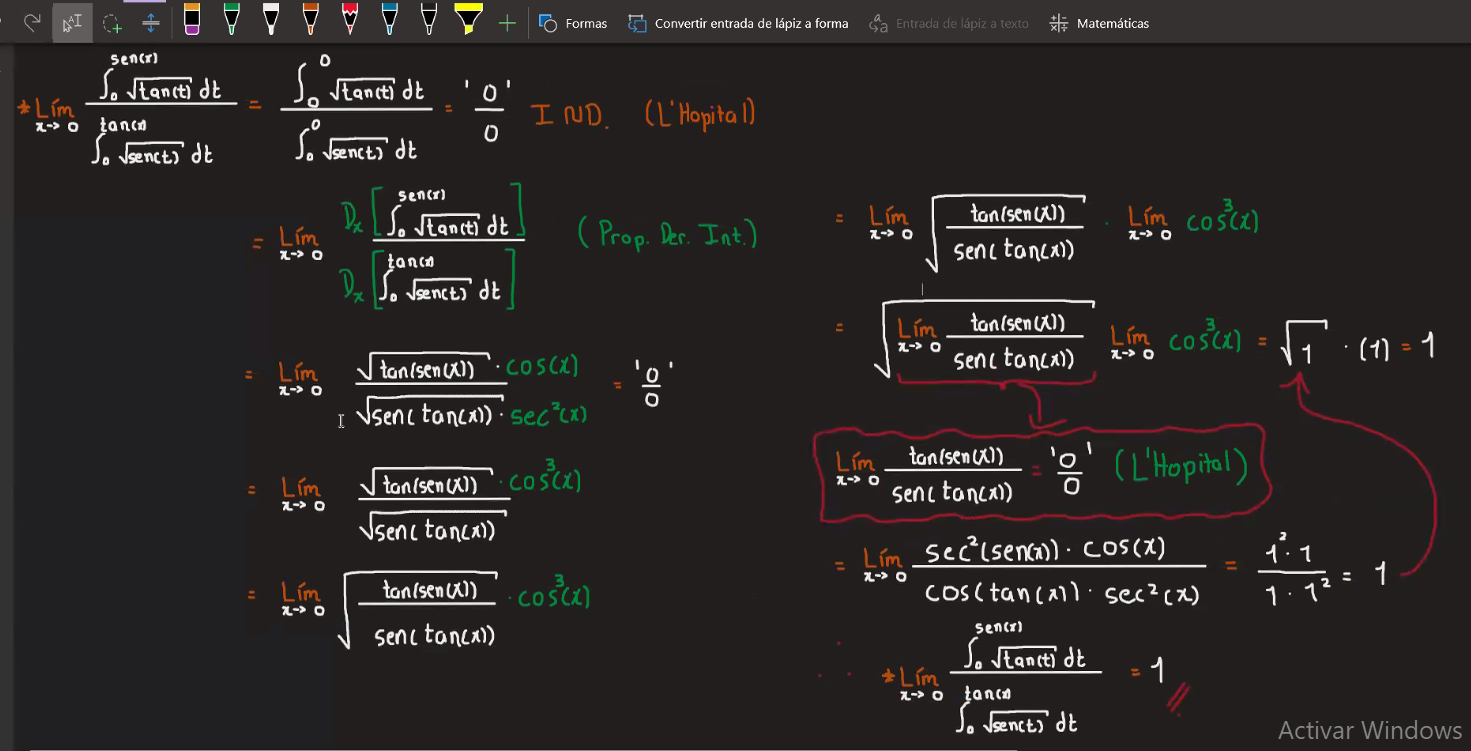 Formas Convertir entrada de lápiz a forma Entrada de lápiz a texto Matemáticas
* Lím x→0 ∫₀^sen(x) √tan(t) dt / ∫₀^tan(x) √sen(t) dt = ∫₀^0 √tan(t) dt / ∫₀^0 √sen(t) dt = '0/0' IND. (L'Hopital)
= Lím x→0 Dx [∫₀^sen(x) √tan(t) dt] / Dx [∫₀^tan(x) √sen(t) dt] (Prop. Der. Int.)
= Lím x→0 √tan(sen(x)) · cos(x) / √sen(tan(x)) · sec²(x) = '0/0'
= Lím x→0 √tan(sen(x)) · cos³(x) / √sen(tan(x))
= Lím x→0 √(tan(sen(x)) / sen(tan(x))) · cos³(x)
= Lím x→0 √(tan(sen(x)) / sen(tan(x))) · Lím x→0 cos³(x)
= √(Lím x→0 tan(sen(x)) / sen(tan(x))) Lím x→0 cos³(x) = √1 · (1) = 1
Lím x→0 tan(sen(x)) / sen(tan(x)) = '0/0' (L'Hopital)
= Lím x→0 sec²(sen(x)) · cos(x) / cos(tan(x)) · sec²(x) = 1² · 1 / 1 · 1² = 1
∴ * Lím x→0 ∫₀^sen(x) √tan(t) dt / ∫₀^tan(x) √sen(t) dt = 1 //
Activar Windows